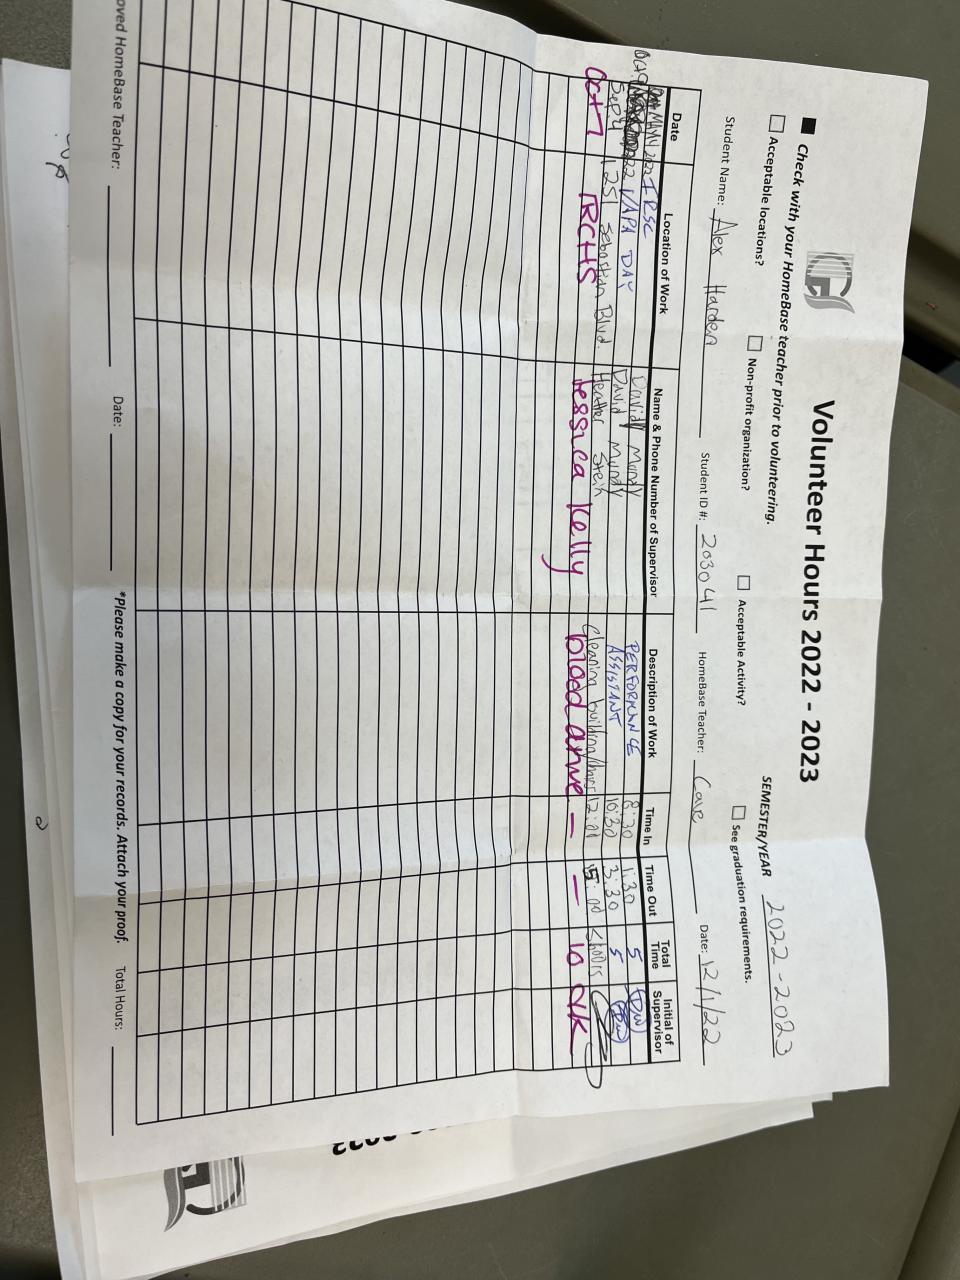 Volunteer Hours 2022 - 2023
SEMESTER/YEAR 2022-2023
Check with your HomeBase teacher prior to volunteering.
Acceptable locations? Non-profit organization? Acceptable Activity? See graduation requirements.
Student Name: Alex Harden Student ID #: 203041 HomeBase Teacher: Cave Date: 12/1/22
Date Location of Work Name & Phone Number of Supervisor Description of Work Time In Time Out Total Time Initial of Supervisor
MAY 14 2022 IRSC David Mundy PERFORMANCE 8:30 1:30 5 DW
VAPA DAY David Mundy ASSISTANT 10:30 3:30 5 DW
Sep 4 1251 Sebastian Blvd. Heather Stein Cleaning building/ 12:00 5:00 5 hours
Oct 7 IRCHS Jessica Kelly blood drive — — 10 JK
oved HomeBase Teacher: Date: *Please make a copy for your records. Attach your proof. Total Hours: